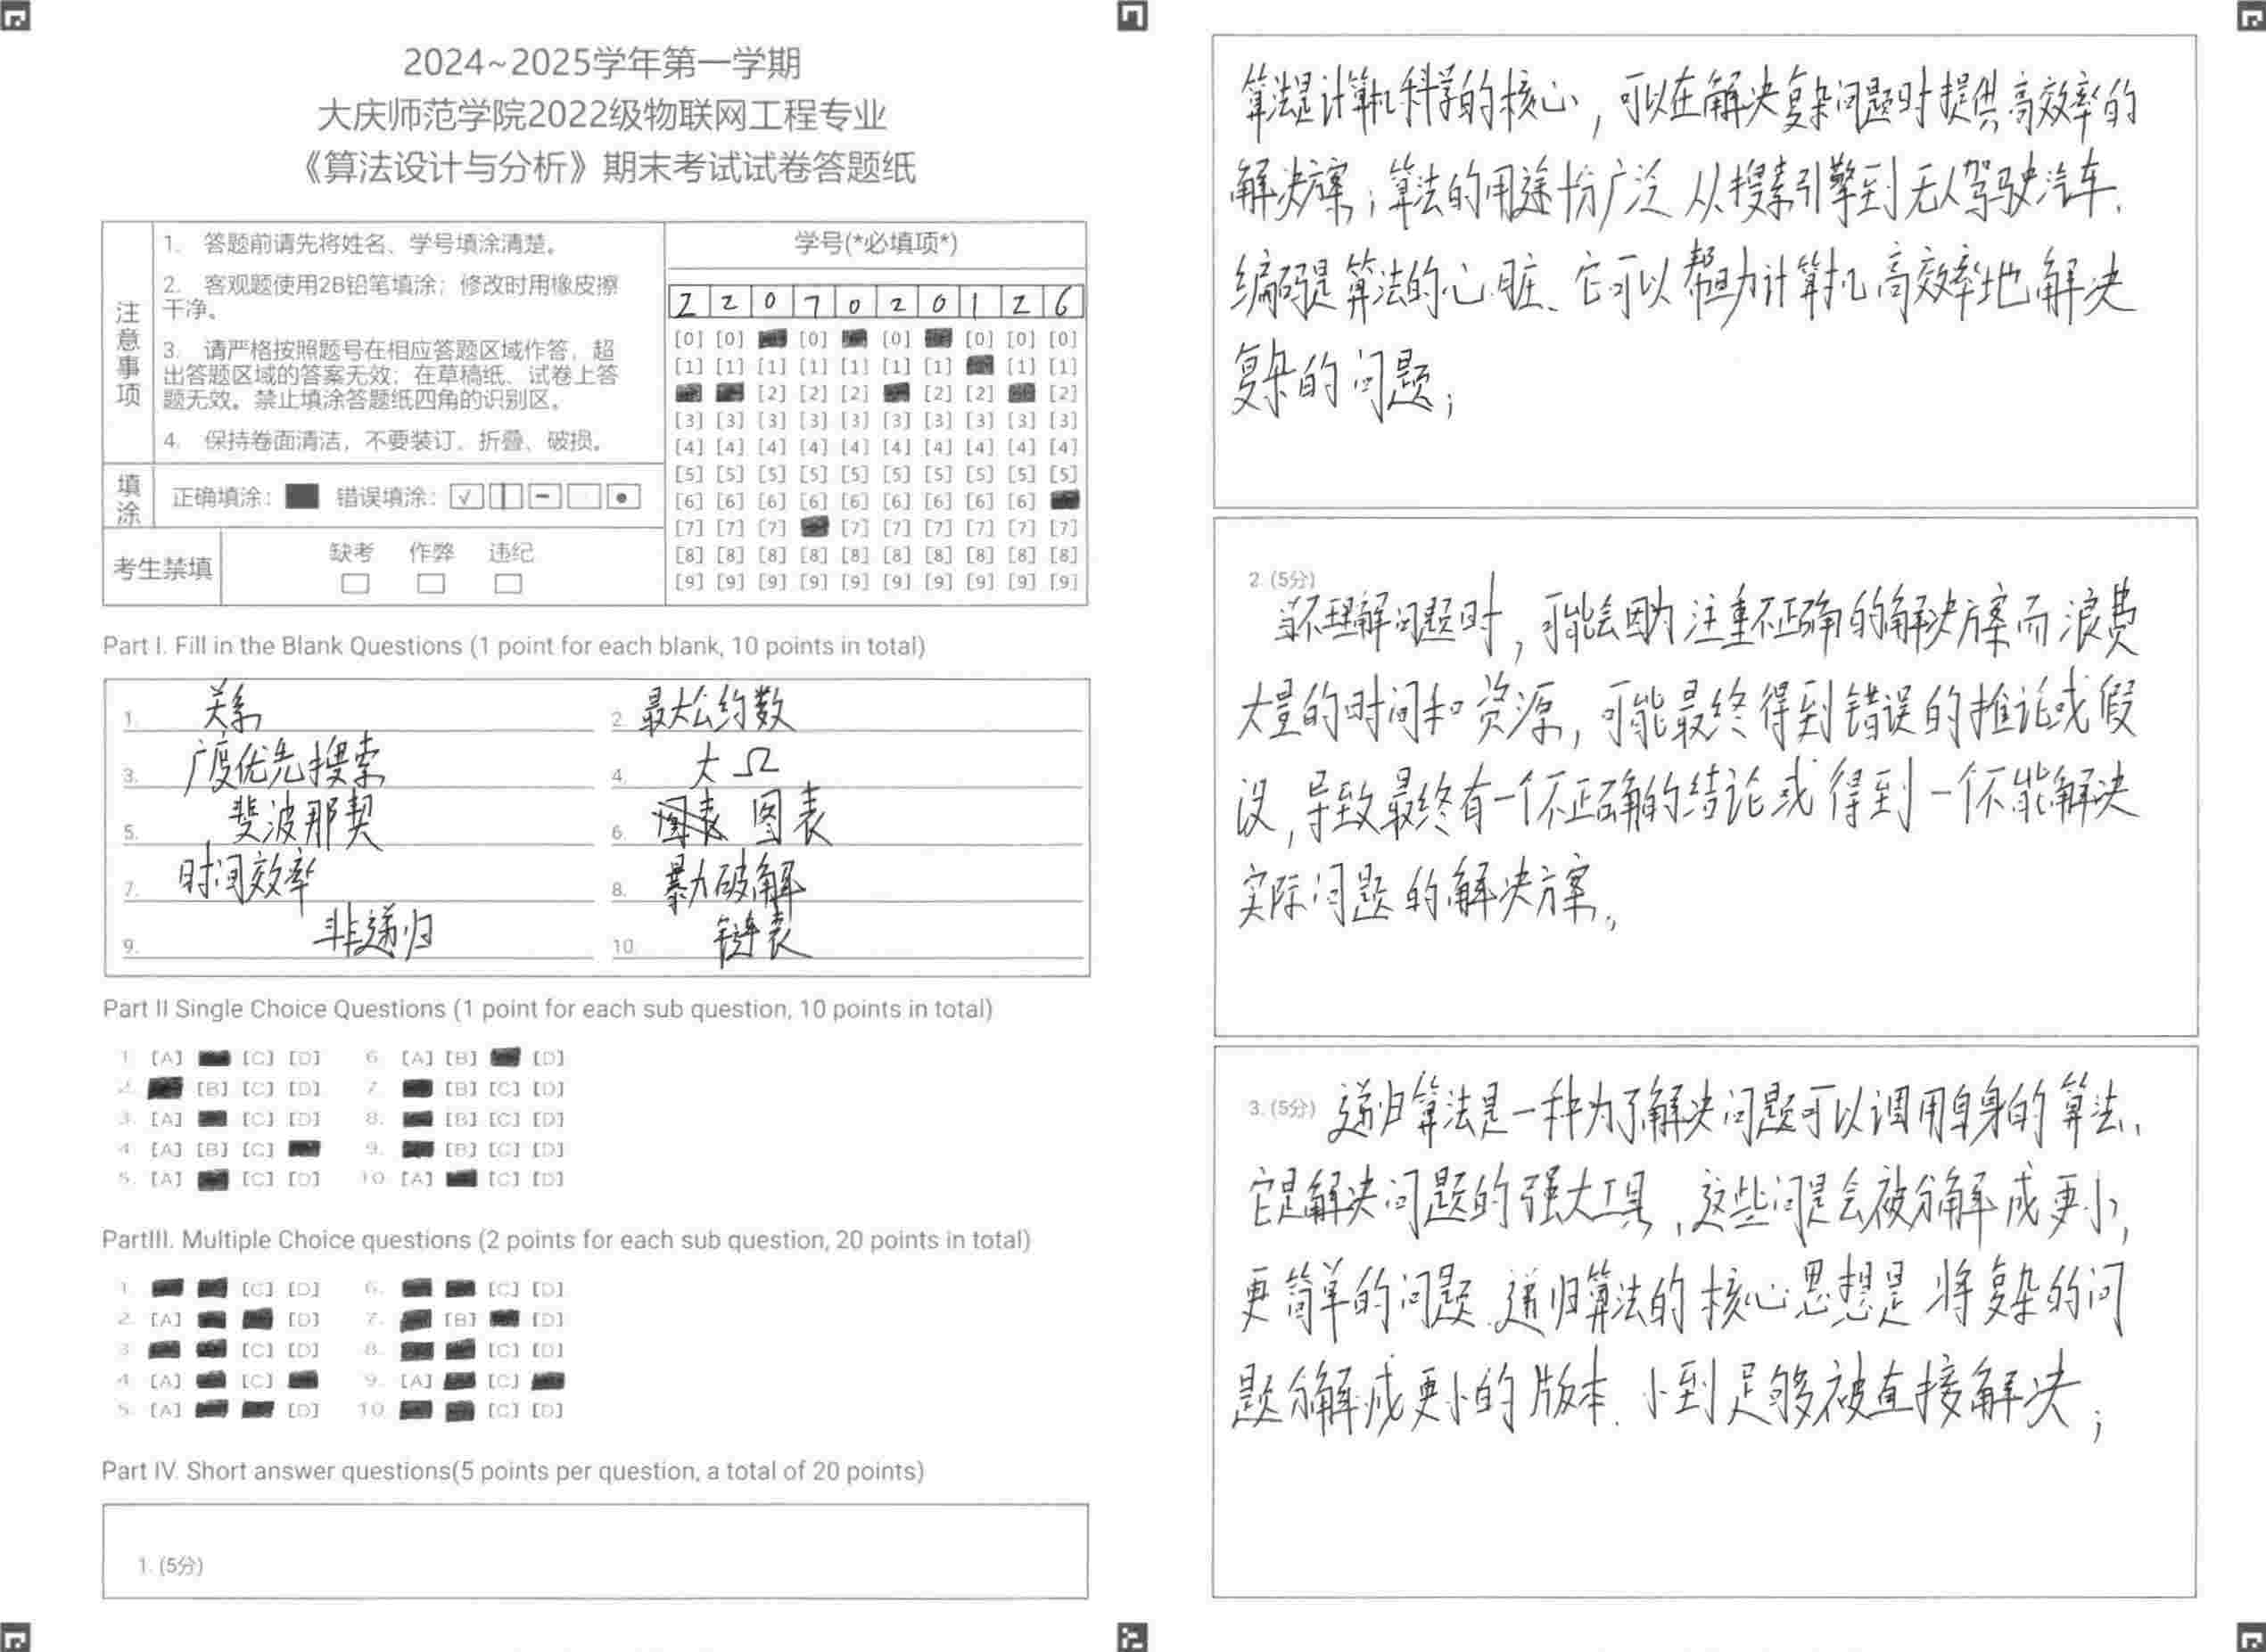 2024~2025学年第一学期
大庆师范学院2022级物联网工程专业
《算法设计与分析》期末考试试卷答题纸
注意事项
1. 答题前请先将姓名、学号填涂清楚。
2. 客观题使用2B铅笔填涂；修改时用橡皮擦
干净。
3. 请严格按照题号在相应答题区域作答，超
出答题区域的答案无效；在草稿纸、试卷上答
题无效。禁止填涂答题纸四角的识别区。
4. 保持卷面清洁，不要装订、折叠、破损。
填涂
正确填涂： 错误填涂：
考生禁填
缺考 作弊 违纪
学号(*必填项*)
2 2 0 7 0 2 0 1 2 6
[0] [0] [0] [0] [0] [0] [0]
[1] [1] [1] [1] [1] [1] [1] [1] [1]
[2] [2] [2] [2] [2] [2]
[3] [3] [3] [3] [3] [3] [3] [3] [3] [3]
[4] [4] [4] [4] [4] [4] [4] [4] [4] [4]
[5] [5] [5] [5] [5] [5] [5] [5] [5] [5]
[6] [6] [6] [6] [6] [6] [6] [6] [6]
[7] [7] [7] [7] [7] [7] [7] [7] [7]
[8] [8] [8] [8] [8] [8] [8] [8] [8] [8]
[9] [9] [9] [9] [9] [9] [9] [9] [9] [9]
Part I. Fill in the Blank Questions (1 point for each blank, 10 points in total)
1. 关系 2. 最大公约数
3. 广度优先搜索 4. 大Ω
5. 斐波那契 6. 图表 图表
7. 时间效率 8. 暴力破解
9. 非递归 10. 链表
Part II Single Choice Questions (1 point for each sub question, 10 points in total)
1. [A] [C] [D] 6. [A] [B] [D]
2. [B] [C] [D] 7. [B] [C] [D]
3. [A] [C] [D] 8. [B] [C] [D]
4. [A] [B] [C] 9. [B] [C] [D]
5. [A] [C] [D] 10. [A] [C] [D]
PartIII. Multiple Choice questions (2 points for each sub question, 20 points in total)
1. [C] [D] 6. [C] [D]
2. [A] [D] 7. [B] [D]
3. [C] [D] 8. [C] [D]
4. [A] [C] 9. [A] [C]
5. [A] [D] 10. [C] [D]
Part IV. Short answer questions(5 points per question, a total of 20 points)
1. (5分)
算法是计算机科学的核心，可以在解决复杂问题时提供高效率的
解决方案；算法的用途十分广泛 从搜索引擎到无人驾驶汽车.
编码是算法的心脏、它可以帮助计算机高效率地解决
复杂的问题；
2. (5分)
当不理解问题时，可能会因为注重不正确的解决方案而浪费
大量的时间和资源，可能最终得到错误的推论或假
设，导致最终有一个不正确的结论或得到一个不能解决
实际问题的解决方案。
3. (5分) 递归算法是一种为了解决问题可以调用自身的算法、
它是解决问题的强大工具，这些问题会被分解成更小，
更简单的问题.递归算法的核心思想是将复杂的问
题分解成更小的版本.小到足够被直接解决；